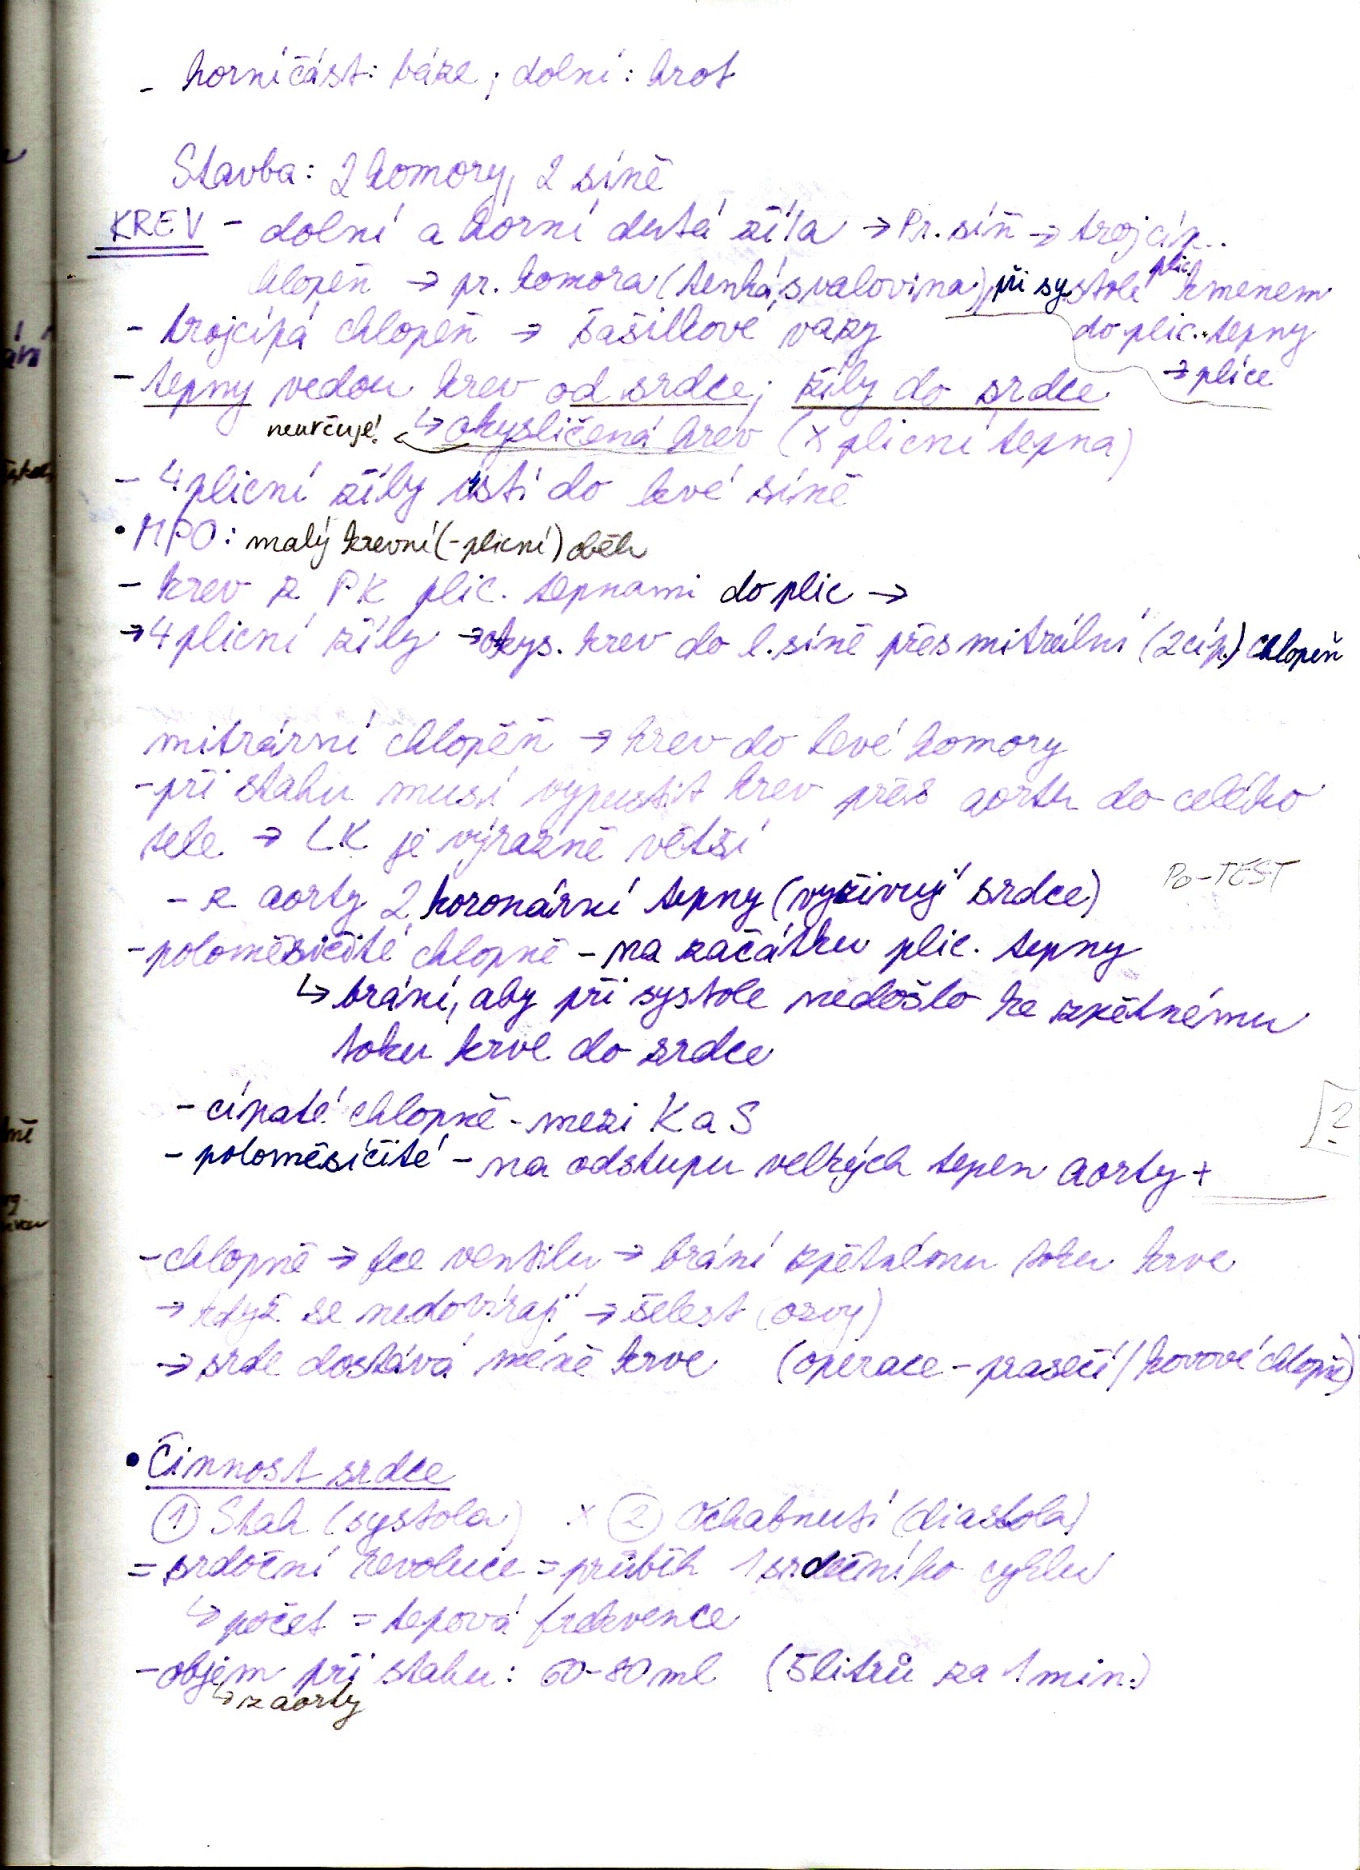 - horní část: báze; dolní: hrot
Stavba: 2 komory, 2 síně
KREV - dolní a horní dutá žíla → Pr. síň → trojcíp..
chlopeň → pr. komora (tenká svalovina), při systole plic. kmenem
do plic. tepny
→ plíce
- trojcípá chlopeň → šašilkové vazy
- tepny vedou krev od srdce; žíly do srdce
neurčuje! ↳ okysličená krev (x plicní tepna)
- 4 plicní žíly ústí do levé síně
• MPO: malý krevní (-plicní) oběh
- krev z PK plic. tepnami do plic →
→ 4 plicní žíly → okys. krev do l. síně přes mitrální (2cíp.) chlopeň
mitrární chlopěň → krev do levé komory
- při stahu musí vypustit krev přes aortu do celého
tele → LK je výrazně větší
Po-TEST
- z aorty 2 koronární tepny (vyživují srdce)
- poloměsíčité chlopně - na začátku plic. tepny
↳ brání, aby při systole nedošlo ke zpětnému
toku krve do srdce
- cípaté chlopně - mezi K a S
2
- poloměsíčité - na odstupu velkých tepen aorty +
- chlopně → fce ventilu → brání zpětnému toku krve
→ když se nedovírají → šelest (ozvy)
→ srdce dostává méně krve (operace - prasečí / kovové chlopně)
• Činnost srdce
① Stah (systola) x ② Ochabnutí (diastola)
= srdeční revoluce = průběh 1 srdečního cyklu
↳ počet = tepová frekvence
- objem při stahu: 60-80 ml (5 litrů za 1 min.)
↳ z aorty